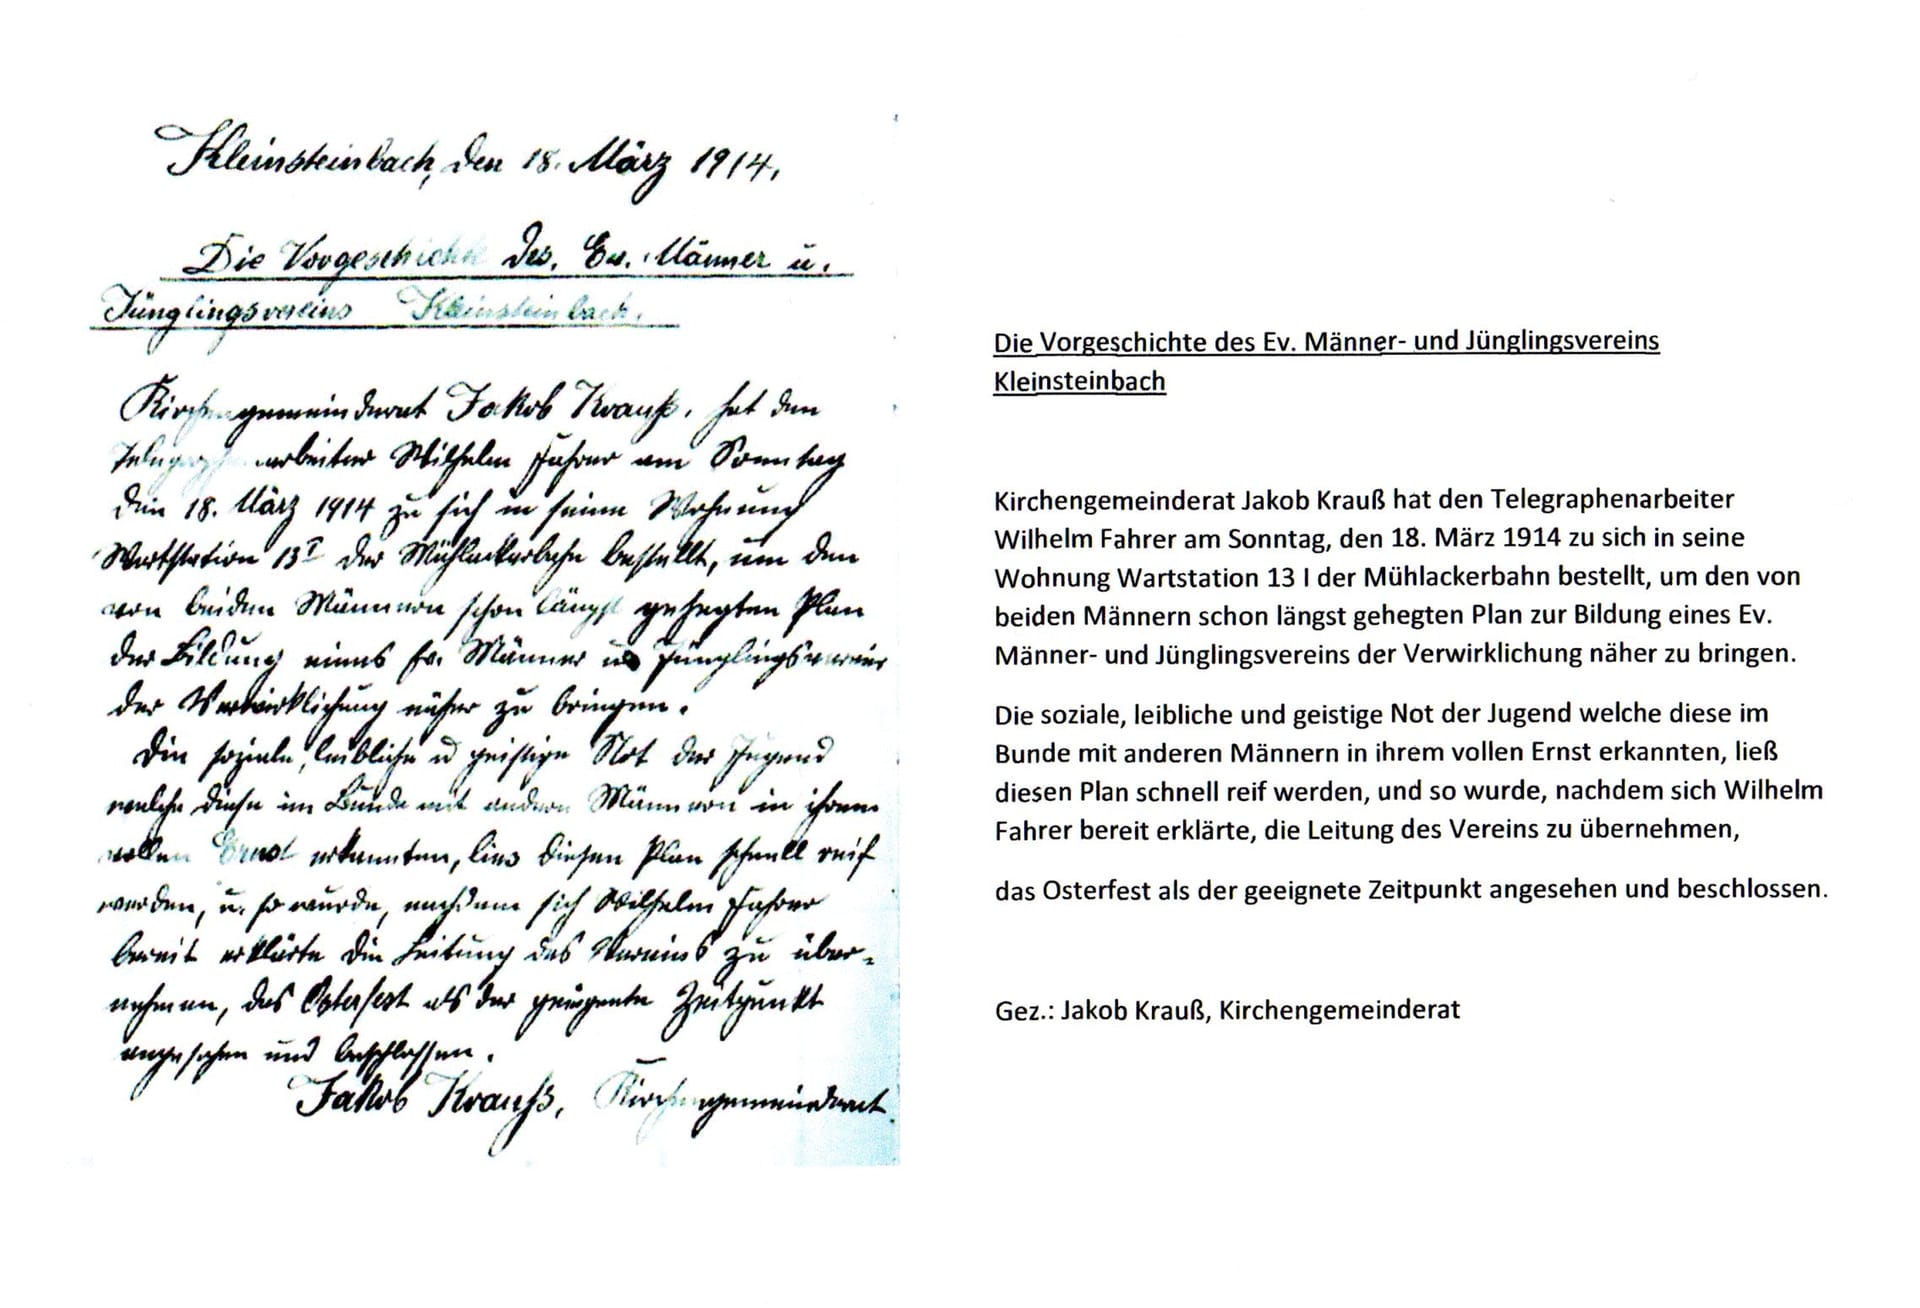 Kleinsteinbach, den 18. März 1914,
Die Vorgeschichte des. Ev. Männer u.
Jünglingsvereins Kleinsteinbach.
Kirchengemeinderat Jakob Krauß, hat den
Telegraphenarbeiter Wilhelm Fahrer am Sonntag
den 18. März 1914 zu sich in seine Wohnung
Wartstation 13 I der Mühlackerbahn bestellt, um den
von beiden Männern schon längst gehegten Plan
der Bildung eines Ev. Männer u Jünglingsvereins
der Verwirklichung näher zu bringen.
Die soziale, leibliche u geistige Not der Jugend
welche diese im Bunde mit andern Männern in ihrem
vollen Ernst erkannten, lies diesen Plan schnell reif
werden, u. so wurde, nachdem sich Wilhelm Fahrer
bereit erklärte die Leitung des Vereins zu über-
nehmen, das Osterfest als der geeignete Zeitpunkt
angesehen und beschlossen.
Jakob Krauß, Kirchengemeinderat
Die Vorgeschichte des Ev. Männer- und Jünglingsvereins
Kleinsteinbach
Kirchengemeinderat Jakob Krauß hat den Telegraphenarbeiter
Wilhelm Fahrer am Sonntag, den 18. März 1914 zu sich in seine
Wohnung Wartstation 13 I der Mühlackerbahn bestellt, um den von
beiden Männern schon längst gehegten Plan zur Bildung eines Ev.
Männer- und Jünglingsvereins der Verwirklichung näher zu bringen.
Die soziale, leibliche und geistige Not der Jugend welche diese im
Bunde mit anderen Männern in ihrem vollen Ernst erkannten, ließ
diesen Plan schnell reif werden, und so wurde, nachdem sich Wilhelm
Fahrer bereit erklärte, die Leitung des Vereins zu übernehmen,
das Osterfest als der geeignete Zeitpunkt angesehen und beschlossen.
Gez.: Jakob Krauß, Kirchengemeinderat